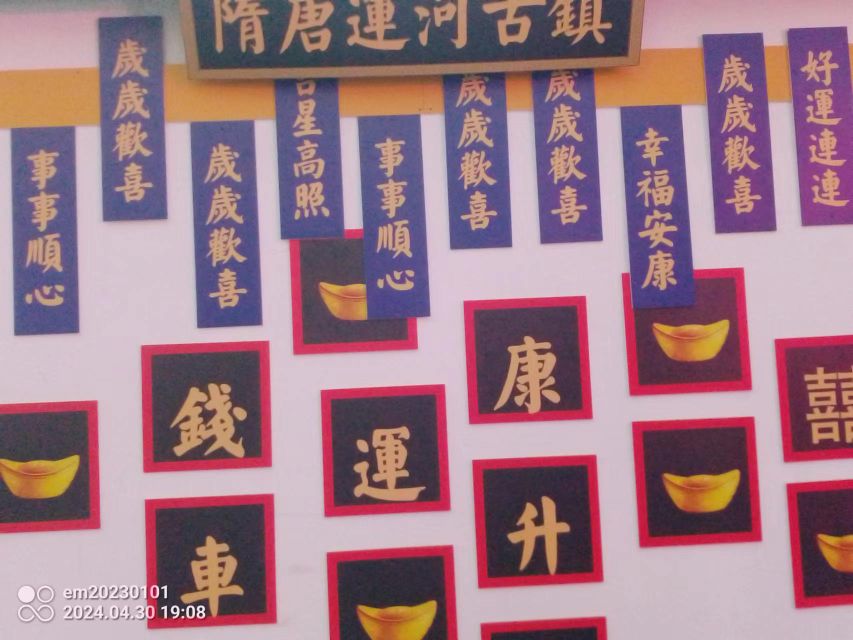 隋唐運河古鎮
事事順心
歲歲歡喜
歲歲歡喜
吉星高照
事事順心
歲歲歡喜
歲歲歡喜
幸福安康
歲歲歡喜
好運連連
錢
運
康
囍
車
升
em20230101
2024.04.30 19:08